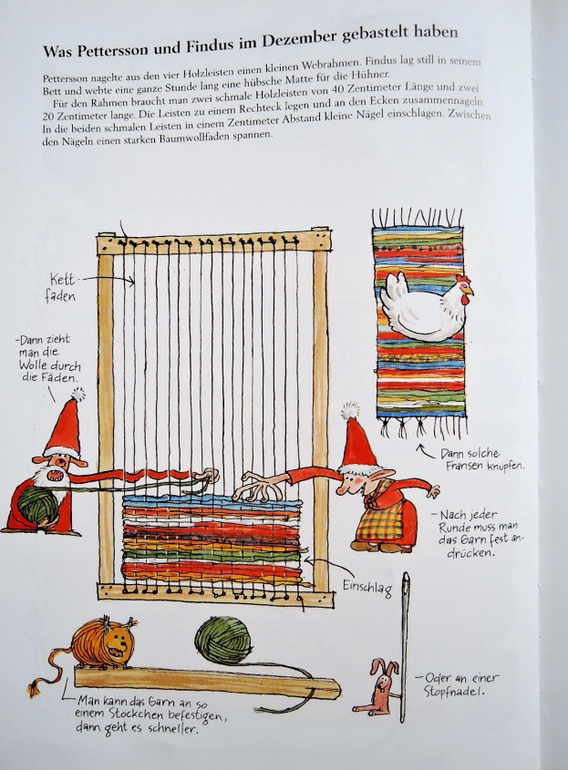 Was Pettersson und Findus im Dezember gebastelt haben
Pettersson nagelte aus den vier Holzleisten einen kleinen Webrahmen. Findus lag still in seinem
Bett und webte eine ganze Stunde lang eine hübsche Matte für die Hühner.
Für den Rahmen braucht man zwei schmale Holzleisten von 40 Zentimeter Länge und zwei
20 Zentimeter lange. Die Leisten zu einem Rechteck legen und an den Ecken zusammennageln.
In die beiden schmalen Leisten in einem Zentimeter Abstand kleine Nägel einschlagen. Zwischen
den Nägeln einen starken Baumwollfaden spannen.
Kett-
faden
-Dann zieht
man die
Wolle durch
die Fäden.
Dann solche
Fransen knüpfen.
-Nach jeder
Runde muss man
das Garn fest an-
drücken.
Einschlag
-Man kann das Garn an so
einem Stöckchen befestigen,
dann geht es schneller.
-Oder an einer
Stopfnadel.